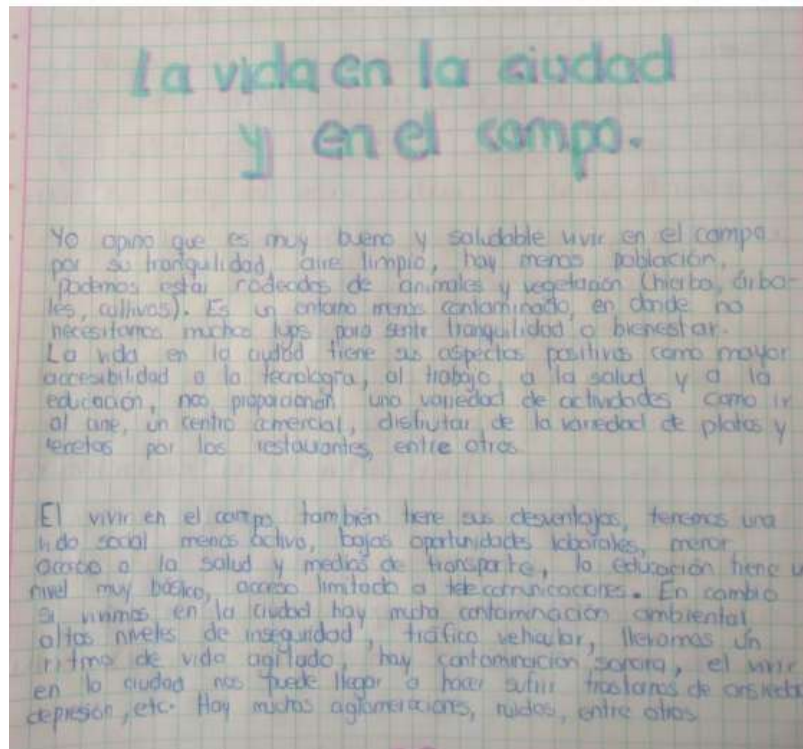 La vida en la ciudad
y en el campo.
Yo opino que es muy bueno y saludable vivir en el campo
por su tranquilidad, aire limpio, hay menos población,
podemos estar rodeados de animales y vegetación (hierba, árbo-
les, cultivos). Es un entorno menos contaminado, en donde no
necesitamos muchos lujos para sentir tranquilidad o bienestar.
La vida en la ciudad tiene sus aspectos positivos como mayor
accesibilidad a la tecnología, al trabajo, a la salud y a la
educación, nos proporcionan una variedad de actividades como ir
al cine, un centro comercial, disfrutar de la variedad de platos y
recetas por los restaurantes, entre otros
El vivir en el campo también tiene sus desventajas, tenemos una
vida social menos activa, bajas oportunidades laborales, menor
acceso a la salud y medios de transporte, la educación tiene u
nivel muy básico, acceso limitado a telecomunicaciones. En cambio
si vivimos en la ciudad hay mucha contaminación ambiental
altos niveles de inseguridad, tráfico vehicular, llevamos un
ritmo de vida agitado, hay contaminación sonora, el vivir
en la ciudad nos puede llegar a hacer sufrir trastornos de ansieda
depresión, etc. Hay muchas aglomeraciones, ruidos, entre otros